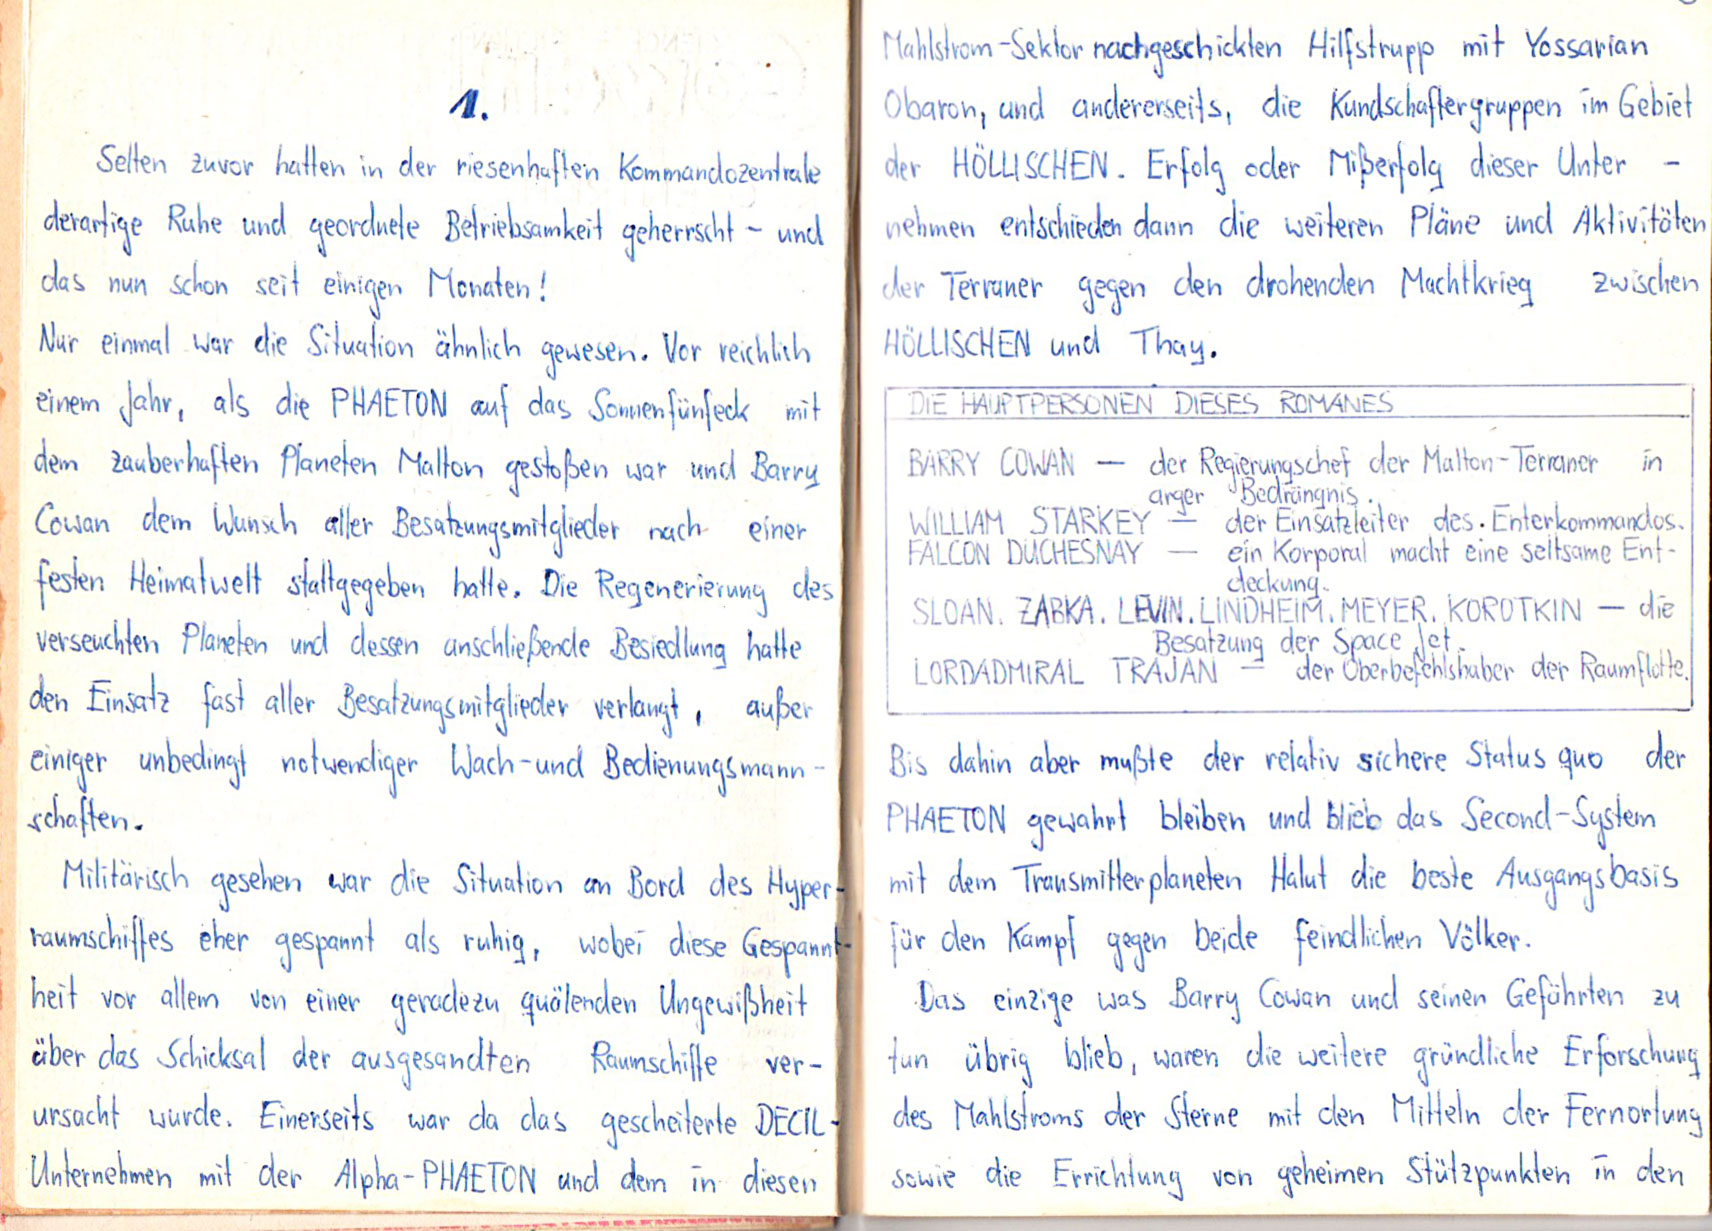 1.
Selten zuvor hatten in der riesenhaften Kommandozentrale
derartige Ruhe und geordnete Betriebsamkeit geherrscht - und
das nun schon seit einigen Monaten!
Nur einmal war die Situation ähnlich gewesen. Vor reichlich
einem Jahr, als die PHAETON auf das Sonnenfünfeck mit
dem zauberhaften Planeten Malton gestoßen war und Barry
Cowan dem Wunsch aller Besatzungsmitglieder nach einer
festen Heimatwelt stattgegeben hatte. Die Regenerierung des
verseuchten Planeten und dessen anschließende Besiedlung hatte
den Einsatz fast aller Besatzungsmitglieder verlangt, außer
einiger unbedingt notwendiger Wach-und Bedienungsmann-
schaften.
Militärisch gesehen war die Situation an Bord des Hyper-
raumschiffes eher gespannt als ruhig, wobei diese Gespannt-
heit vor allem von einer geradezu quälenden Ungewißheit
über das Schicksal der ausgesandten Raumschiffe ver-
ursacht wurde. Einerseits war da das gescheiterte DECIL-
Unternehmen mit der Alpha-PHAETON und dem in diesen
Mahlstrom-Sektor nachgeschickten Hilfstrupp mit Yossarian
Obaron, und andererseits, die Kundschaftergruppen im Gebiet
der HÖLLISCHEN. Erfolg oder Mißerfolg dieser Unter -
nehmen entschieden dann die weiteren Pläne und Aktivitäten
der Terraner gegen den drohenden Machtkrieg zwischen
HÖLLISCHEN und Thay.
DIE HAUPTPERSONEN DIESES ROMANES
BARRY COWAN — der Regierungschef der Malton-Terraner in
arger Bedrängnis.
WILLIAM STARKEY — der Einsatzleiter des Enterkommandos.
FALCON DUCHESNAY — ein Korporal macht eine seltsame Ent-
deckung.
SLOAN. ZABKA. LEVIN. LINDHEIM. MEYER. KOROTKIN — die
Besatzung der Space Jet.
LORDADMIRAL TRAJAN — der Oberbefehlshaber der Raumflotte.
Bis dahin aber mußte der relativ sichere Status quo der
PHAETON gewahrt bleiben und blieb das Second-System
mit dem Transmitterplaneten Halut die beste Ausgangsbasis
für den Kampf gegen beide feindlichen Völker.
Das einzige was Barry Cowan und seinen Gefährten zu
tun übrig blieb, waren die weitere gründliche Erforschung
des Mahlstroms der Sterne mit den Mitteln der Fernortung
sowie die Errichtung von geheimen Stützpunkten in den